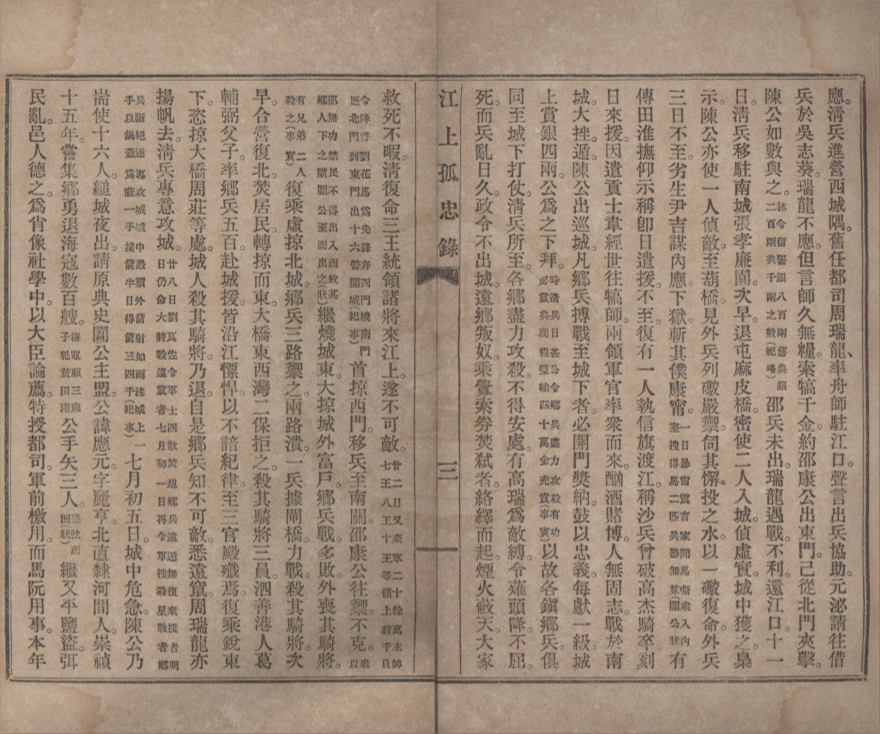 應清兵進營西城隅舊任都司周瑞龍率舟師駐江口聲言出兵協助元泌請往借
兵於吳志葵瑞龍不應但言師久無糧索犒千金約邵康公出東門己從北門夾擊
陳公如數與之休令留響銀八百兩慈與銀二百兩共千兩之數(紀略)邵兵未出瑞龍遇戰不利還江口十一
日清兵移駐南城張孝廉園次早退屯麻皮橋密使二人入城偵虛實城中獲之梟
示陳公亦使一人偵敵至葫橋見外兵列礮嚴禦伺其懈投之水以一礮復命外兵
三日不至劣生尹吉謀內應下獄斬其僕康甯有
傳田淮撫仰示稱卽日遣援不至復有一人執信旗渡江稱沙兵曾破高杰騎卒刻
日來援因遣貢士韋經世往犒師兩領軍官率衆而來酗酒賭博人無固志戰於南
城大挫遁陳公出巡城凡鄉兵搏戰至城下者必開門獎納鼓以忠義每獻一級城
上賞銀四兩公爲之下拜以故各鎭鄉兵俱
同至城下打仗清兵所至各鄉盡力攻殺不得安處有高瑞爲敵縛令薙頭降不屈
死而兵亂日久政令不出城遠鄉叛奴乘釁索劵焚弒者絡繹而起煙火蔽天大家
江上孤忠錄
三
救死不暇清復命三王統領諸將來江上遂不可敵廿二日又來軍二十餘萬主帥七王八王十王等領上將千員
令降將劉花馬爲先鋒奔四門搜南門歷北門到東門出十六營圍城(紀事)首掠西門移兵至南關邵康公往禦不克衆以
邵無功禁民不得出入酒故其鄉人下之獄圍公至而出之(狀)繼燒城東大掠城外富戶鄉兵戰多敗外喪其騎將
有兄弟二人殺之(事實)復乘虛掠北城鄉兵三路禦之兩路潰一兵據閘橋力戰殺其騎將次
早合營復北焚居民轉掠而東大橋東西灣二保拒之殺其騎將三員泗善港人葛
輔弼父子率鄉兵五百赴城援皆沿江慓悍以不諳紀律至三官殿殲焉復乘銳東
下恣掠大橋周莊等處城人殺其騎將乃退自是鄉兵知不可敵悉遠竄周瑞龍亦
揚帆去清兵專意攻城七月初五日城中危急陳公乃
耑使十六人縋城夜出請原典史閻公主盟公諱應元字麗亨北直隸河間人崇禎
十五年嘗集鄉勇退海寇數百艘海寇顧三麻子犯黃田港公手矢三人應弦而倒(狀)繼又平鹽盜弭
民亂邑人德之爲肖像社學中以大臣論薦特授都司軍前檄用而馬阮用事本年